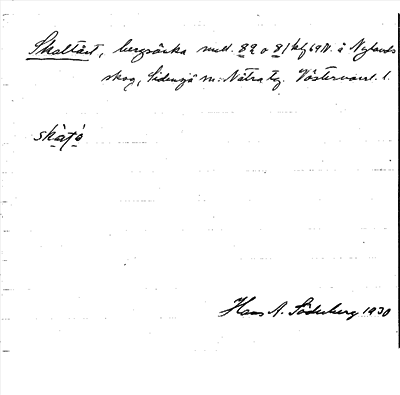 Skaltäst, bergsäcka mell. 82 o 81 kly 69 N. å Nylands
skog, Sidensjö sn. Nätra tg. Västernorrl. l.
skàtó
Hans A. Söderberg 1930